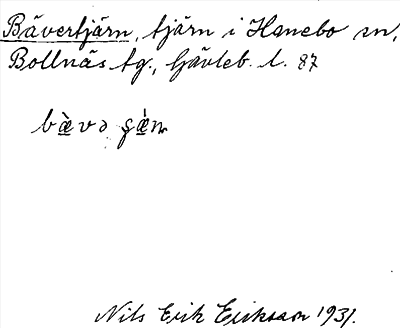 Bävertjärn, tjärn i Hanebo sn,
Bollnäs tg., Gävleb. l. 87
bæ̀və
Nils Erik Eriksson 1931.